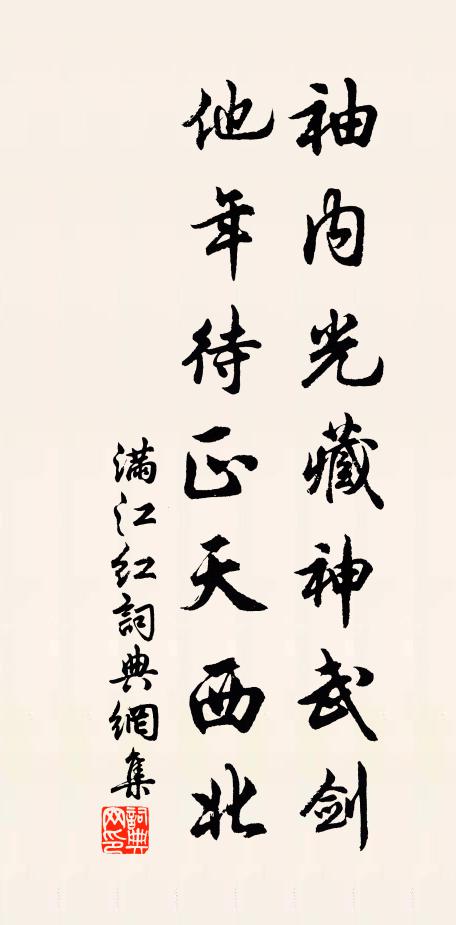 袖内光藏神武劍
他年待正天西北
滿江红詞典網集
詞典网印